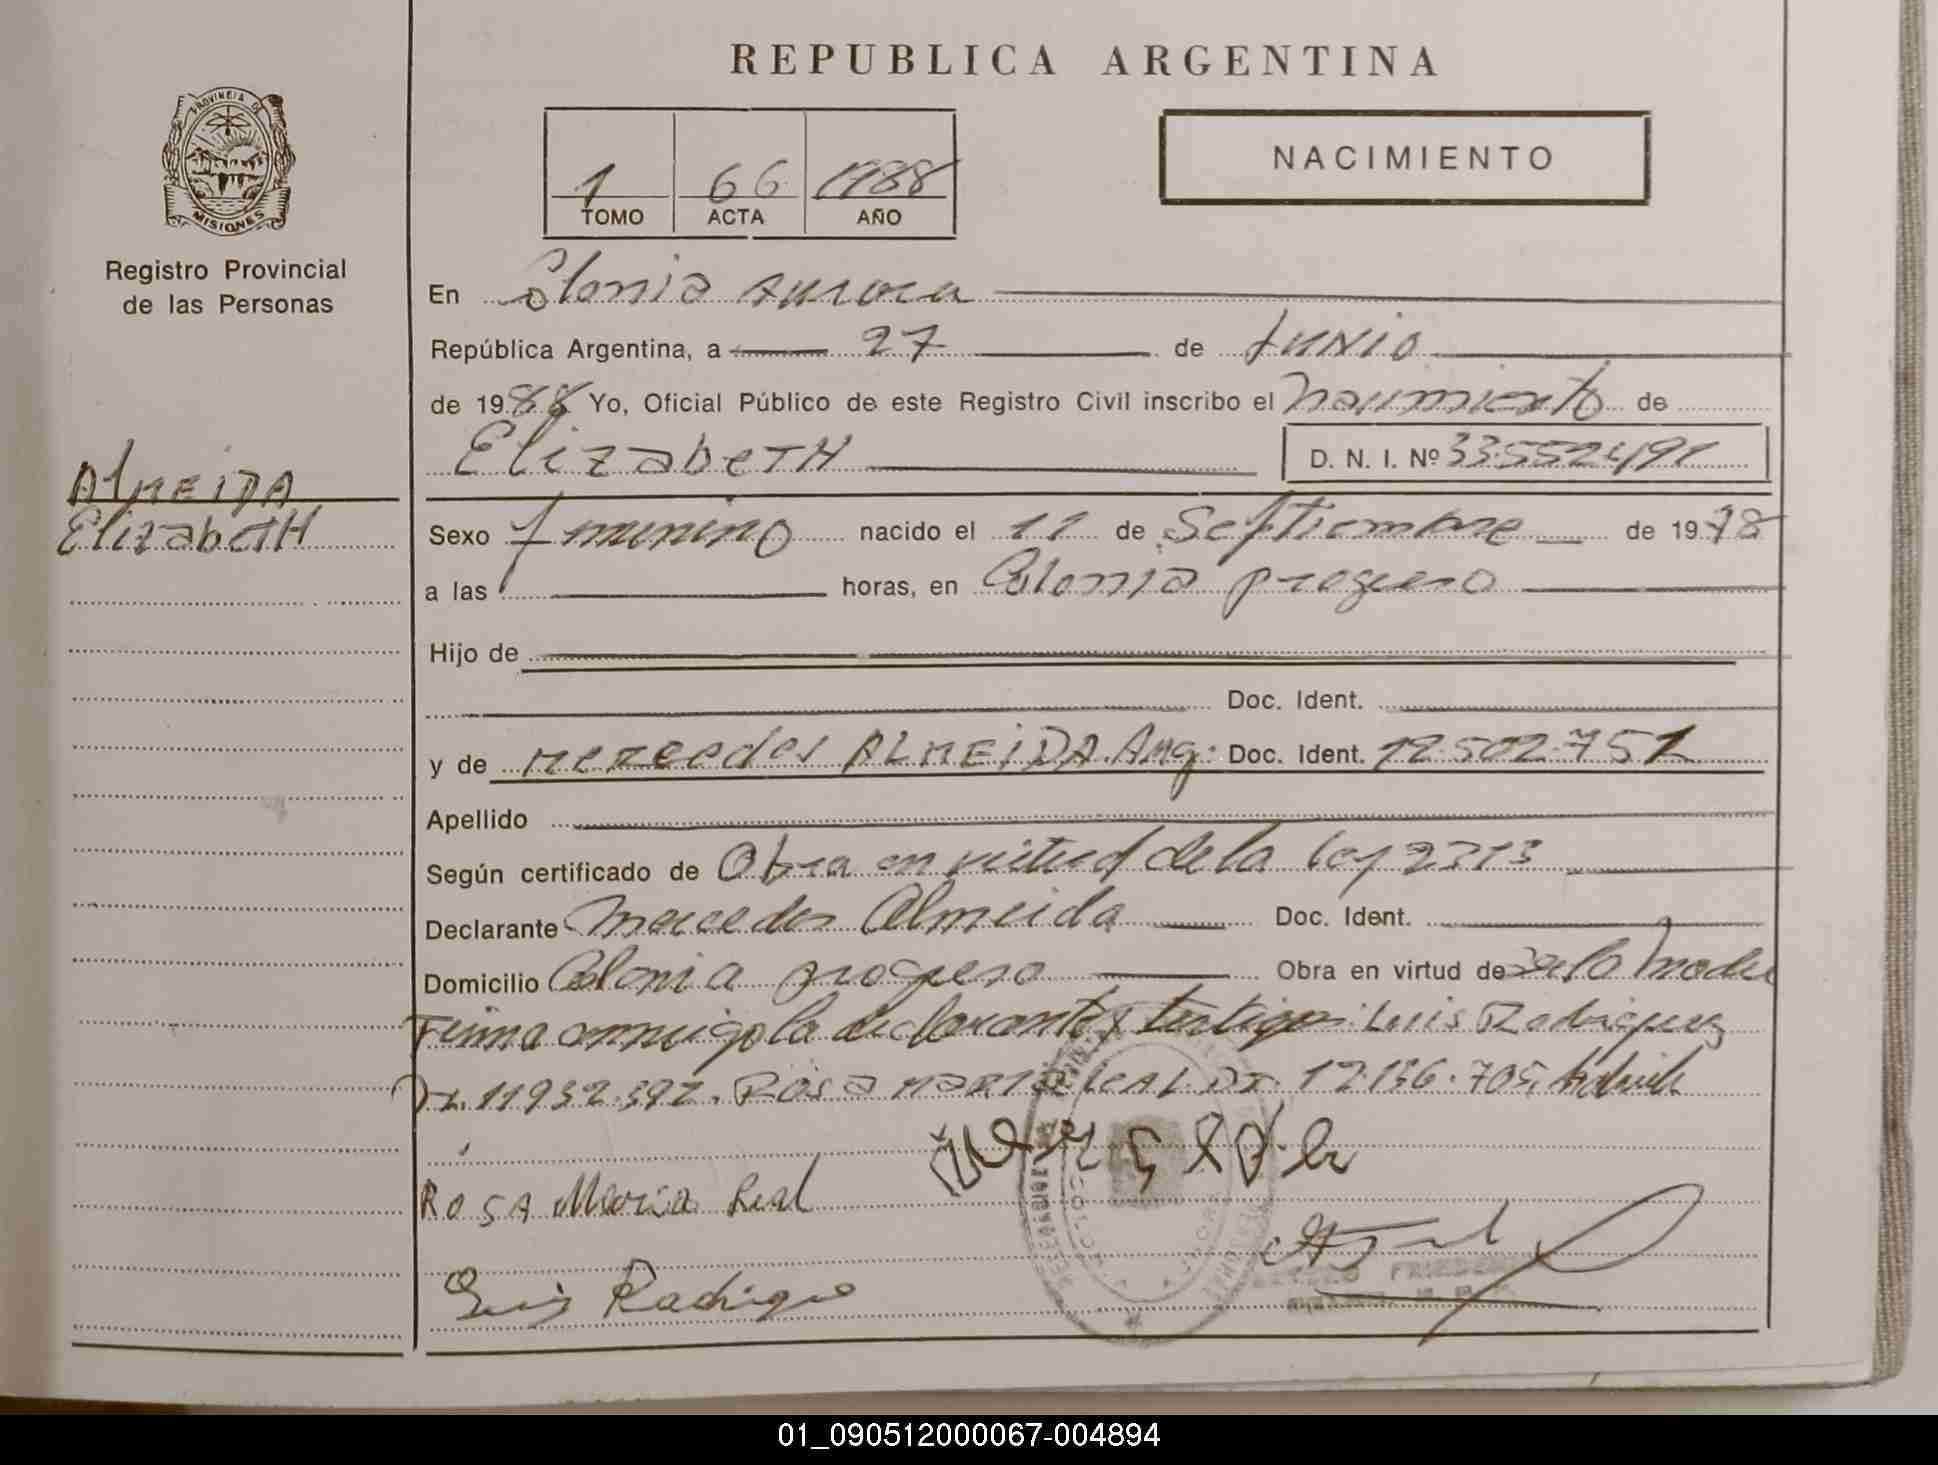 REPUBLICA ARGENTINA
PROVINCIA DE
MISIONES
Registro Provincial
de las Personas
1 66 1988
TOMO ACTA AÑO
NACIMIENTO
En Colonia Aurora
República Argentina, a 27 de Junio
de 1988 Yo, Oficial Público de este Registro Civil inscribo el Nacimiento de
ElizabetH D. N. I. Nº 33.552.491
ALMEIDA
ElizabetH
Sexo femenino nacido el 11 de Septiembre de 1978
a las horas, en Colonia progreso
Hijo de
Doc. Ident.
y de Mercedes ALMEIDA. Arg: Doc. Ident. 12.502.751
Apellido
Según certificado de Obra en virtud de la ley 2313
Declarante Mercedes Almeida Doc. Ident.
Domicilio Colonia progreso Obra en virtud de ser la madre
Firma conmigo la declarante y testigos: Luis Rodriguez
DI. 11932.392. ROSA MARIA LEAL. DI. 12.136.705,
ROSA Maria Leal
Luis Rodrigue
01_090512000067-004894